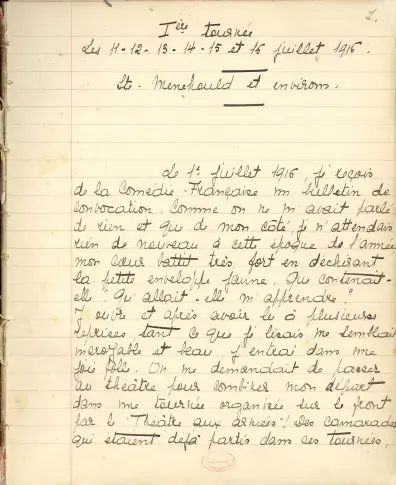 1.
Ière tournée
Les 11-12-13-14-15 et 16 juillet 1916.
Ste-Menehould et environs.
Le 1er juillet 1916, je reçois
de la Comédie-Française un bulletin de
convocation. Comme on ne m'avait parlé
de rien et que de mon côté je n'attendais
rien de nouveau à cette époque de l'année
mon coeur battit très fort en déchirant
la petite enveloppe jaune. Que contenait-
elle? Qu'allait-elle m'apprendre?
J'ouvre et après avoir lu à plusieurs
reprises tant ce que je lisais me semblait
incroyable et beau, j'entrai dans une
joie folle. On me demandait de passer
au théâtre pour combiner mon départ
dans une tournée organisée sur le front
par le "Théâtre aux armées"! Des camarades
qui étaient déjà partis dans ces tournées,